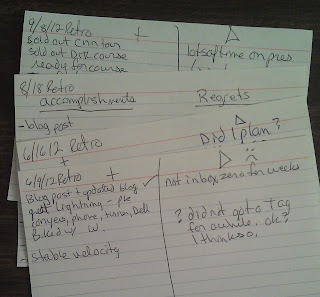 9/8/12 Retro + Δ
sold out Cnn tour
sold out DoR course
ready for course
lots of time on pres
8/18 Retro
accomplishments Regrets
- blog post
Did I plan?
6/16/12 Retro
+ Δ
6/9/12 Retro + ✓
Blog post + updated blog
great lightning -
conyeux, phone, fusion, Dell
Biked w/ W.
stable velocity
not inbox zero for weeks
? didn't go to a Tag
for awhile. ok?
I think so,